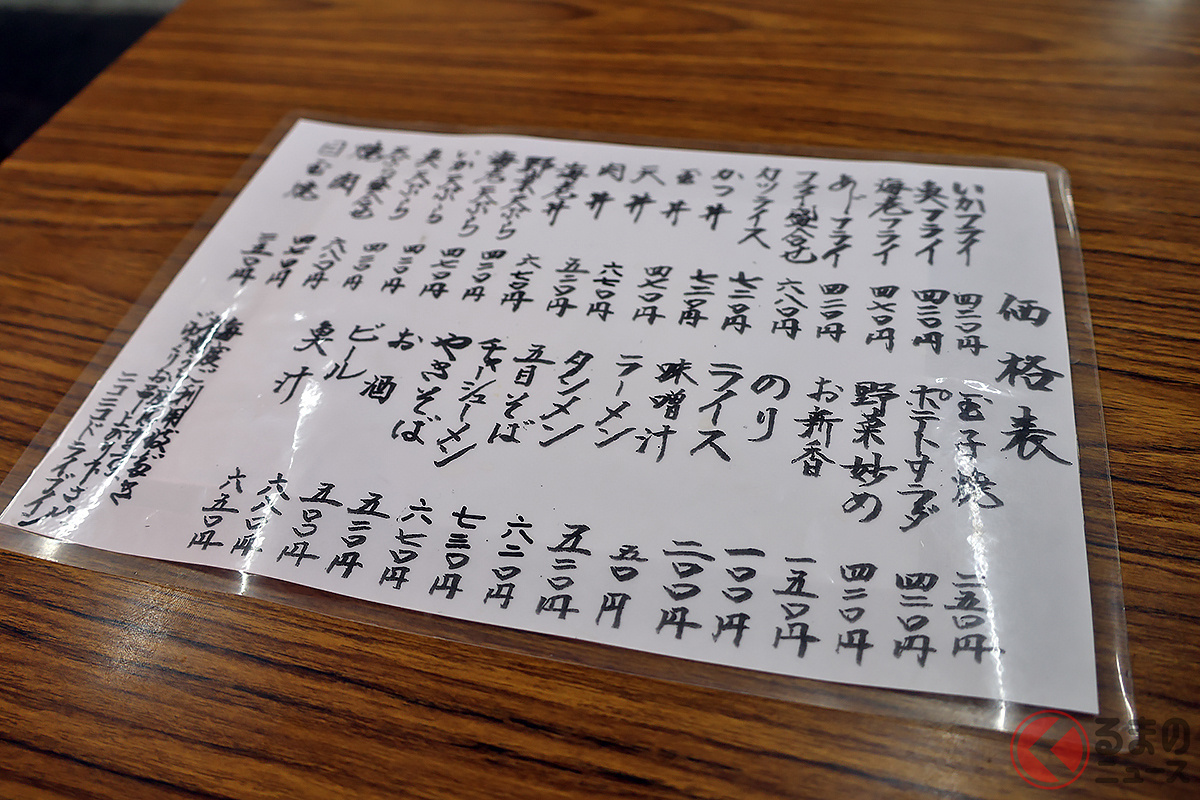 価格表
いかフライ 四二〇円
魚フライ 四二〇円
海老フライ 四七〇円
あじフライ 四二〇円
フライ盛合せ 六八〇円
カツライス 七二〇円
かつ丼 七二〇円
玉丼 四七〇円
天丼 六七〇円
肉丼 五二〇円
海老丼 六七〇円
野菜天ぷら 四二〇円
海老天ぷら 四七〇円
いか天ぷら 四二〇円
魚天ぷら 四二〇円
天ぷら盛合せ 六八〇円
焼肉 四七〇円
目玉焼 二五〇円
玉子焼 二五〇円
ポテトサラダ 四二〇円
野菜妙め 四二〇円
お新香 一五〇円
のり 一〇〇円
ライス 二〇〇円
味噌汁 五〇円
ラーメン 五二〇円
タンメン 六二〇円
五目そば 七三〇円
チャーシューメン 六七〇円
やきそば 五二〇円
お酒 五〇〇円
ビール 六八〇円
魚汁 六五〇円
ニコニコドライブイン
くるまのニュース